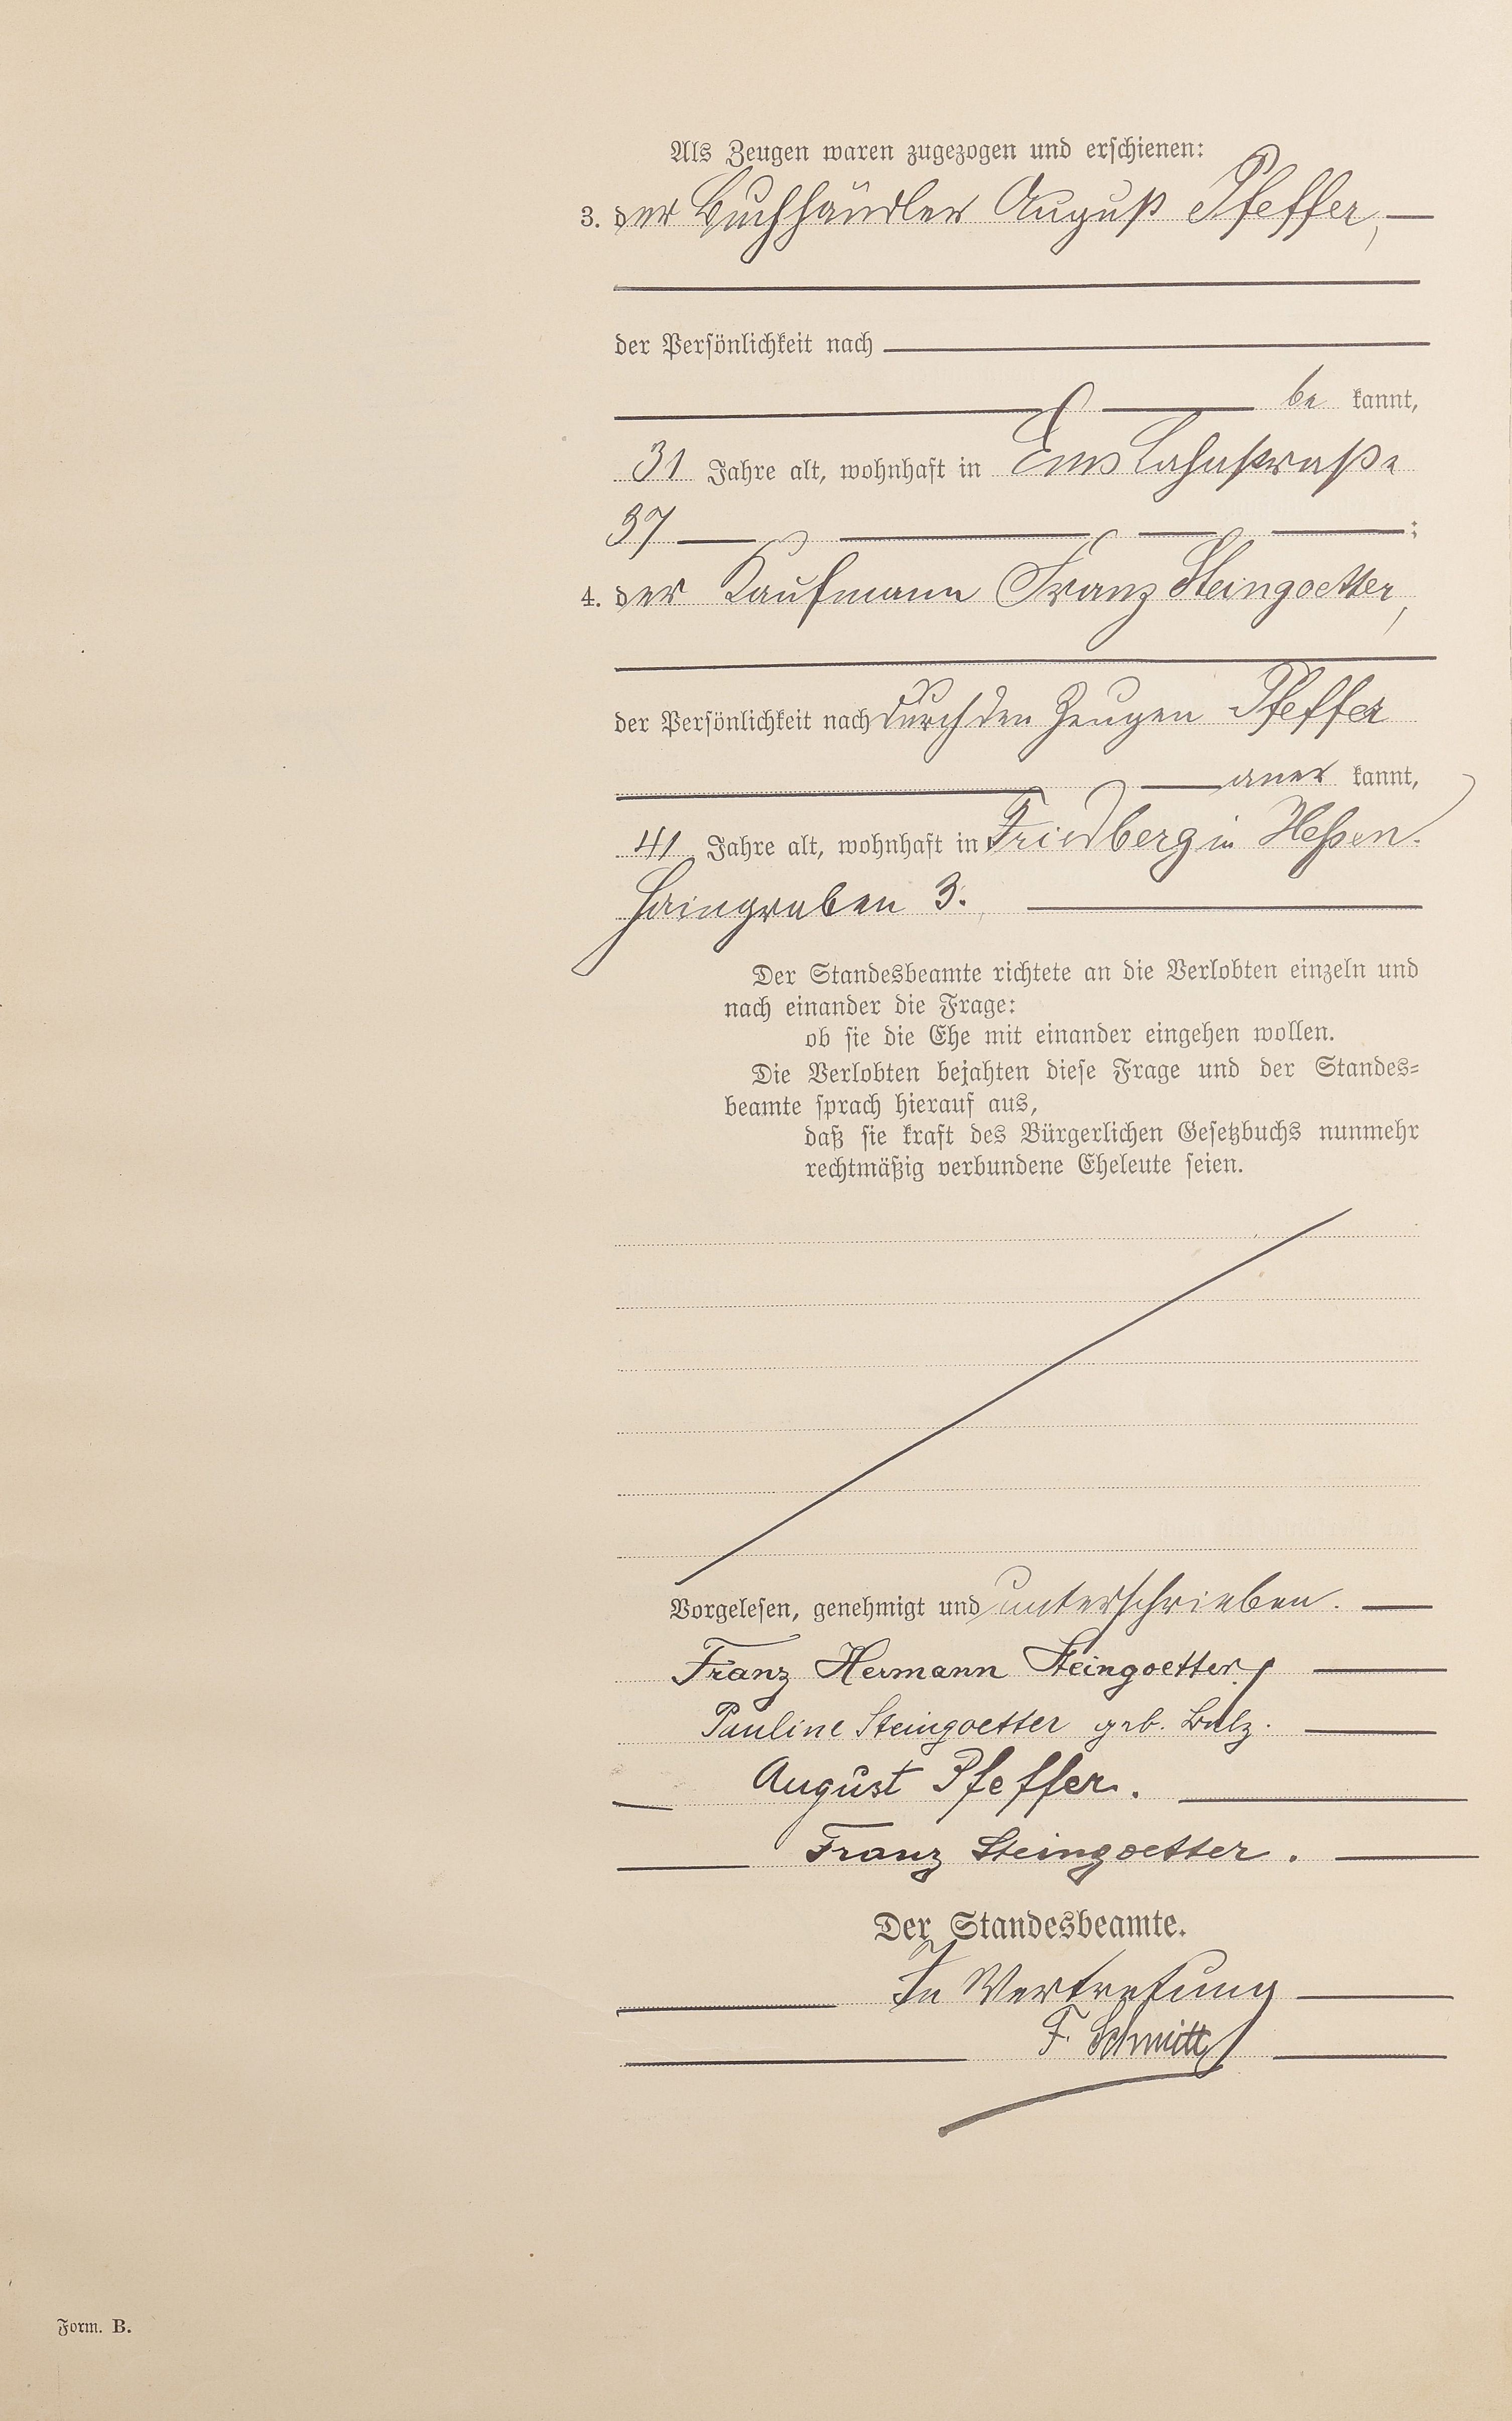 Als Zeugen waren zugezogen und erschienen:
3. der Buchhändler August Pfeffer,
der Persönlichkeit nach
be kannt,
31 Jahre alt, wohnhaft in Ems Lahnstraße
37 ;
4. der Kaufmann Franz Steingoetter,
der Persönlichkeit nach durch den Zeugen Pfeffer
aner kannt,
41 Jahre alt, wohnhaft in Friedberg in Hessen.
Haingraben 3.
Der Standesbeamte richtete an die Verlobten einzeln und
nach einander die Frage:
ob sie die Ehe mit einander eingehen wollen.
Die Verlobten bejahten diese Frage und der Standes=
beamte sprach hierauf aus,
daß sie kraft des Bürgerlichen Gesetzbuchs nunmehr
rechtmäßig verbundene Eheleute seien.
Vorgelesen, genehmigt und unterschrieben.
Franz Hermann Steingoetter.
Pauline Steingoetter geb. Balz.
August Pfeffer.
Franz Steingoetter.
Der Standesbeamte.
In Vertretung
F. Schmitt
Form. B.